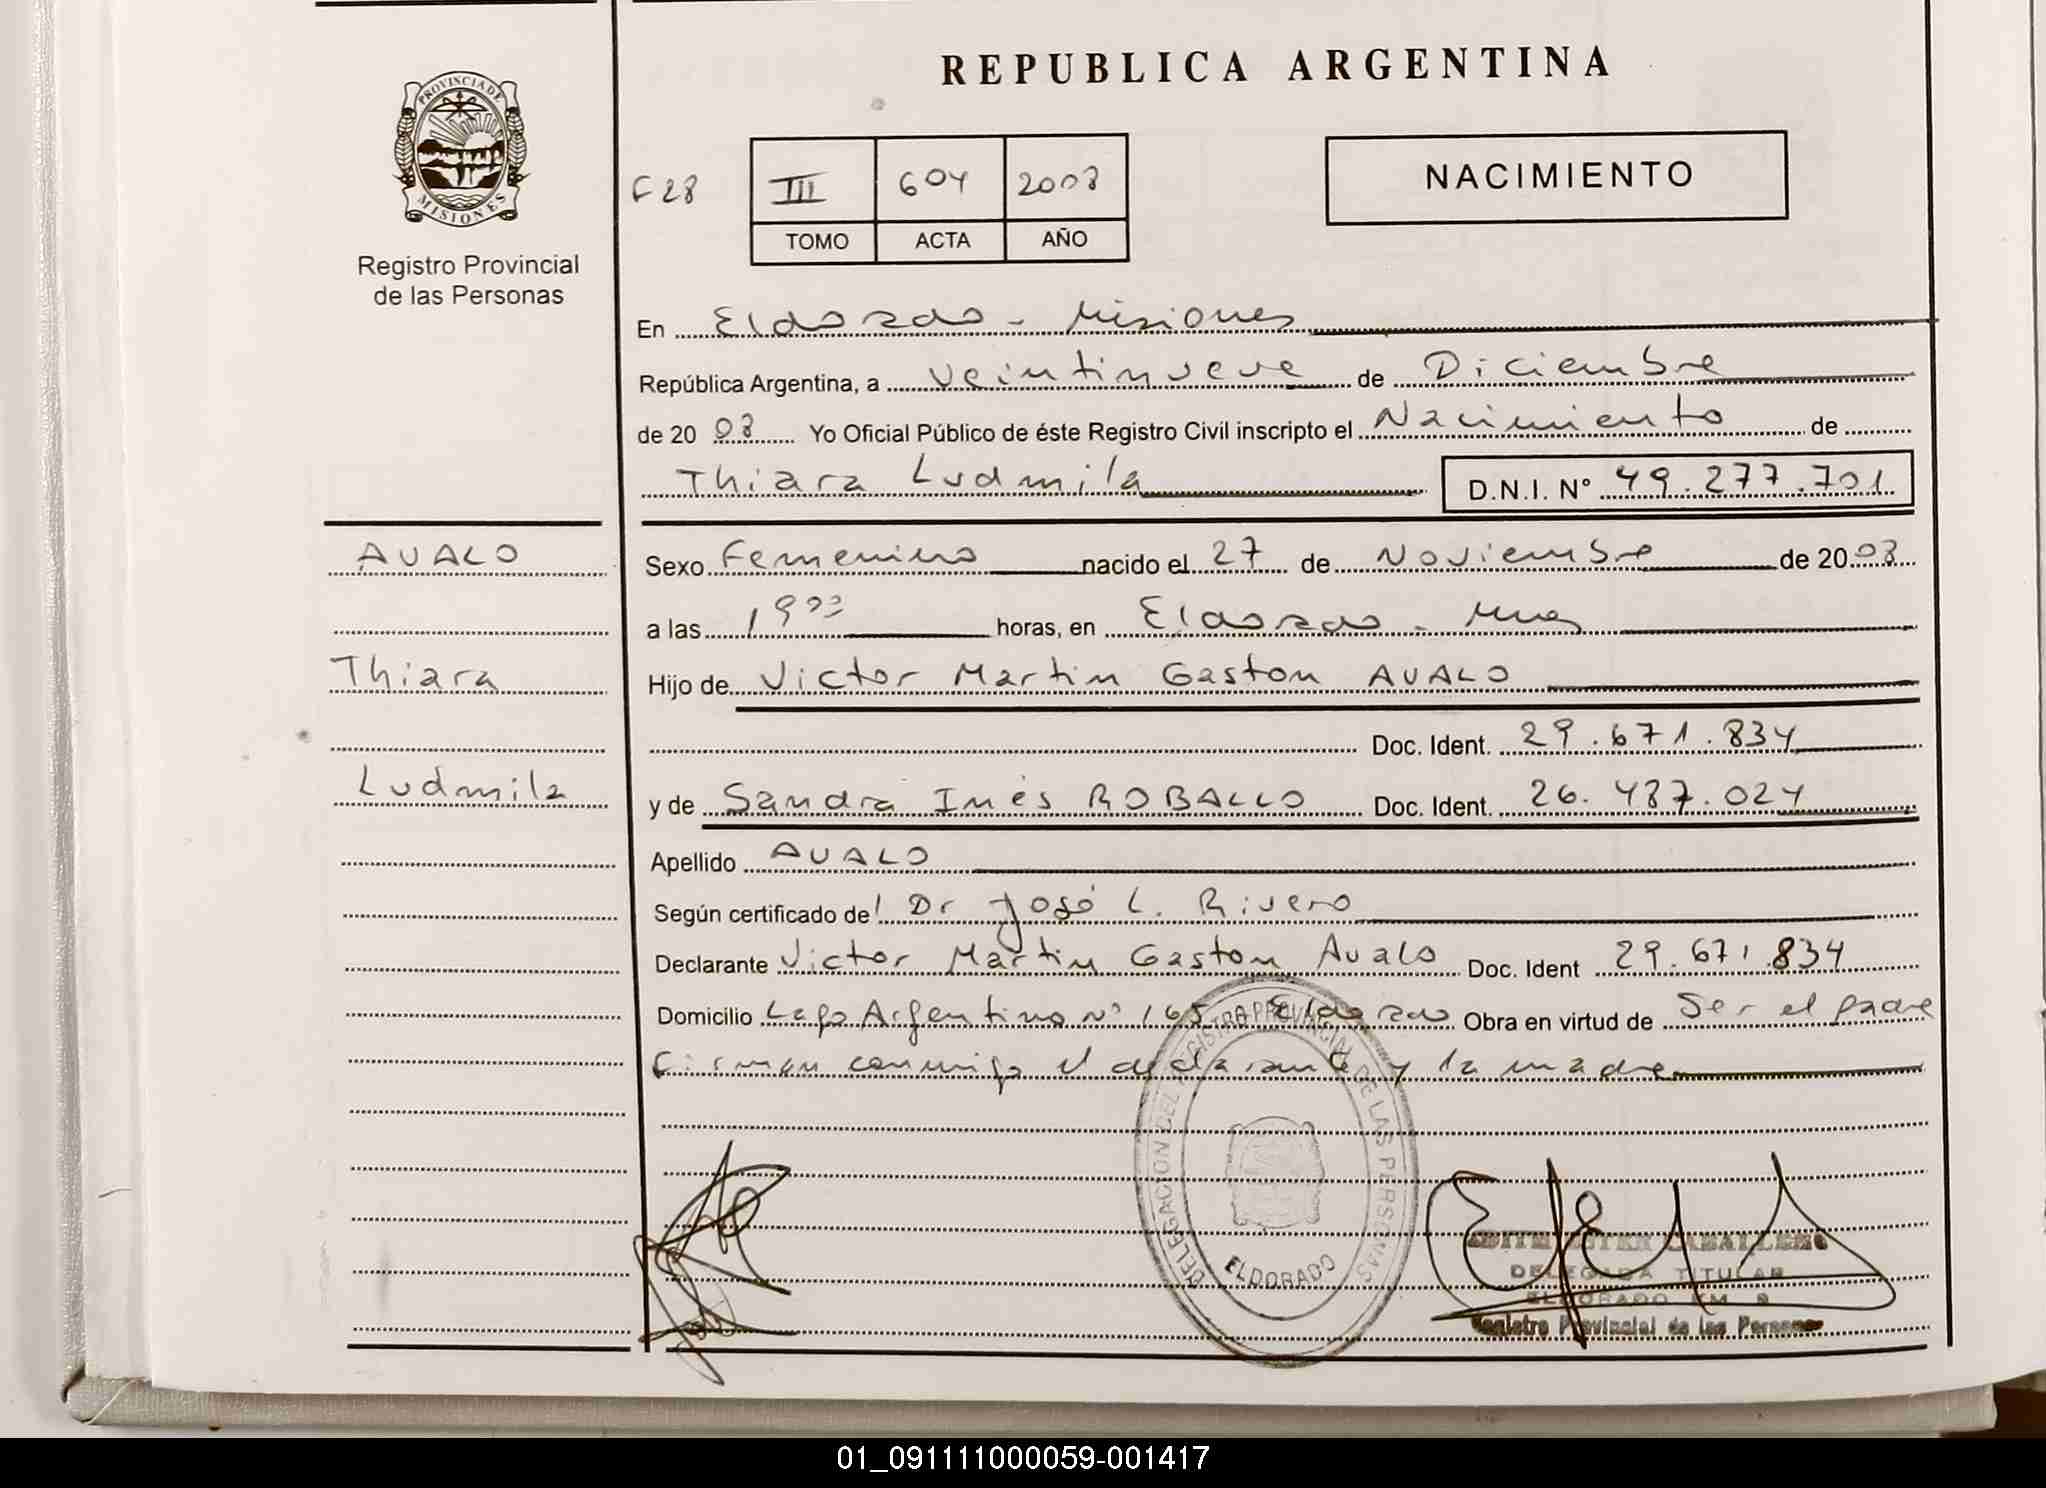 REPUBLICA ARGENTINA
PROVINCIA DE
MISIONES
Registro Provincial
de las Personas
F 28
III 604 2008
TOMO ACTA AÑO
NACIMIENTO
En Eldorado - Misiones
República Argentina, a veintinueve de Diciembre
de 20 08 Yo Oficial Público de éste Registro Civil inscripto el Nacimiento de
Thiara Ludmila D.N.I. Nº 49.277.701
AVALO
Thiara
Ludmila
Sexo Femenino nacido el 27 de Noviembre de 20 08
a las 19⁰⁰ horas, en Eldorado - Mnes
Hijo de Victor Martin Gaston AVALO
Doc. Ident. 29.671.834
y de Sandra Inés ROBALLO Doc. Ident. 26.487.024
Apellido AVALO
Según certificado de l Dr José L. Rivero
Declarante Victor Martin Gaston Avalo Doc. Ident 29.671.834
Domicilio Lago Argentino Nº 165 Eldorado Obra en virtud de Ser el padre
Firman conmigo el declarante y la madre
DELEGACION DEL REGISTRO PROVINCIAL DE LAS PERSONAS
ELDORADO
EDITH ESTER CABALLERO
DELEGADA TITULAR
ELDORADO KM 9
Registro Provincial de las Personas
01_091111000059-001417